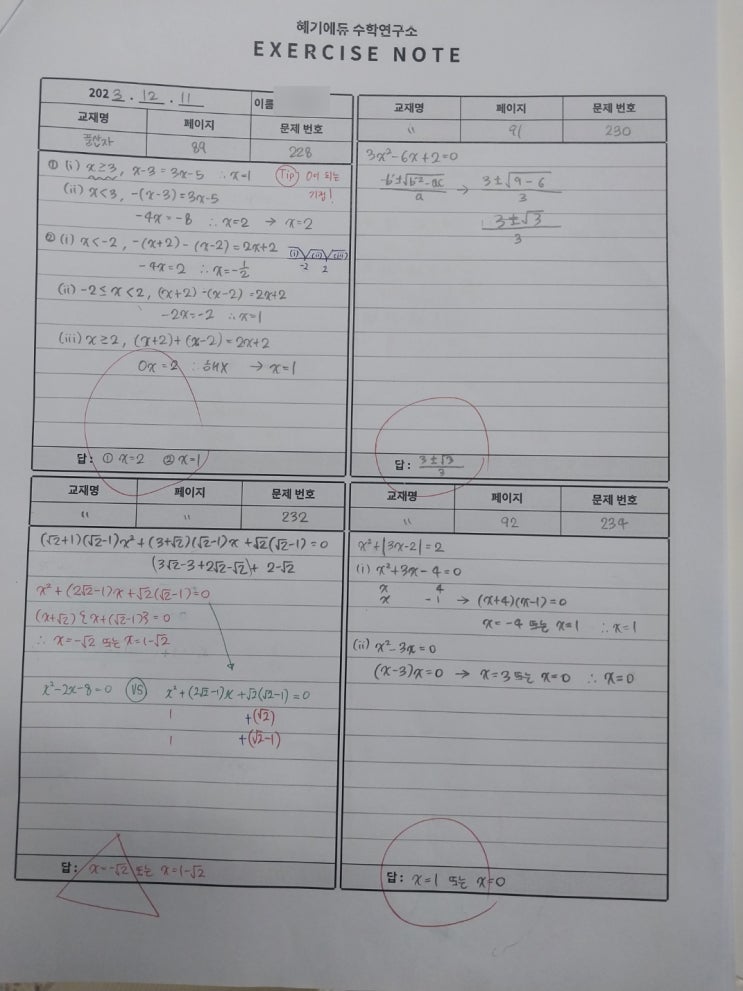 혜기에듀 수학연구소
EXERCISE NOTE
2023. 12. 11 이름
교재명 페이지 문제 번호
풍산자 89 228
① (i) x≥3, x-3=3x-5 ∴x=1 Tip 0이 되는
기점!
(ii) x<3, -(x-3)=3x-5
-4x=-8 ∴x=2 → x=2
② (i) x<-2, -(x+2)-(x-2)=2x+2 (i) (ii) (iii)
-2 2
-4x=2 ∴x=-1/2
(ii) -2≤x<2, (x+2)-(x-2)=2x+2
-2x=-2 ∴x=1
(iii) x≥2, (x+2)+(x-2)=2x+2
0x=2 ∴해X → x=1
답: ① x=2 ② x=1
교재명 페이지 문제 번호
" 91 230
3x²-6x+2=0
-b'±√b'²-ac/a → 3±√9-6/3
3±√3/3
답: 3±√3/3
교재명 페이지 문제 번호
" " 232
(√2+1)(√2-1)x²+(3+√2)(√2-1)x+√2(√2-1)=0
(3√2-3+2√2-√2)+ 2-√2
x²+(2√2-1)x+√2(√2-1)=0
(x+√2){x+(√2-1)}=0
∴ x=-√2 또는 x=1-√2
x²-2x-8=0 VS x²+(2√2-1)x+√2(√2-1)=0
1 +(√2)
1 +(√2-1)
답: x=-√2 또는 x=1-√2
교재명 페이지 문제 번호
" 92 234
x²+|3x-2|=2
(i) x²+3x-4=0
x 4
x -1 → (x+4)(x-1)=0
x=-4 또는 x=1 ∴x=1
(ii) x²-3x=0
(x-3)x=0 → x=3 또는 x=0 ∴x=0
답: x=1 또는 x=0